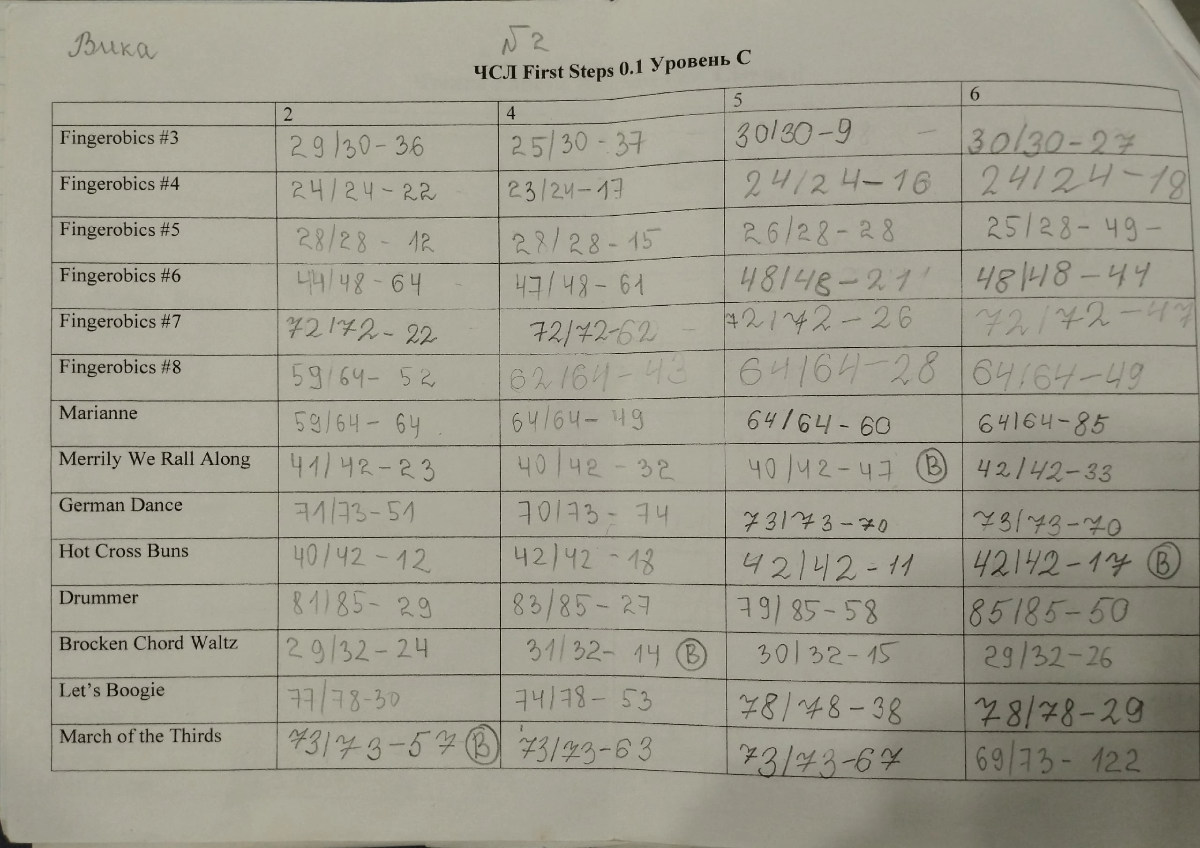 Вика
№ 2
ЧСЛ First Steps 0.1 Уровень С
2 4 5 6
Fingerobics #3 29/30-36 25/30-37 30/30-9 30/30-27
Fingerobics #4 24/24-22 23/24-17 24/24-16 24/24-18
Fingerobics #5 28/28-12 28/28-15 26/28-28 25/28-49-
Fingerobics #6 44/48-64 47/48-61 48/48-21 48/48-44
Fingerobics #7 72/72-22 72/72-62 72/72-26 72/72-47
Fingerobics #8 59/64-52 62/64-43 64/64-28 64/64-49
Marianne 59/64-64 64/64-49 64/64-60 64/64-85
Merrily We Rall Along 41/42-23 40/42-32 40/42-47 В 42/42-33
German Dance 71/73-51 70/73-74 73/73-70 73/73-70
Hot Cross Buns 40/42-12 42/42-18 42/42-11 42/42-17 В
Drummer 81/85-29 83/85-27 79/85-58 85/85-50
Brocken Chord Waltz 29/32-24 31/32-14 В 30/32-15 29/32-26
Let’s Boogie 77/78-30 74/78-53 78/78-38 78/78-29
March of the Thirds 73/73-57 В 73/73-63 73/73-67 69/73-122